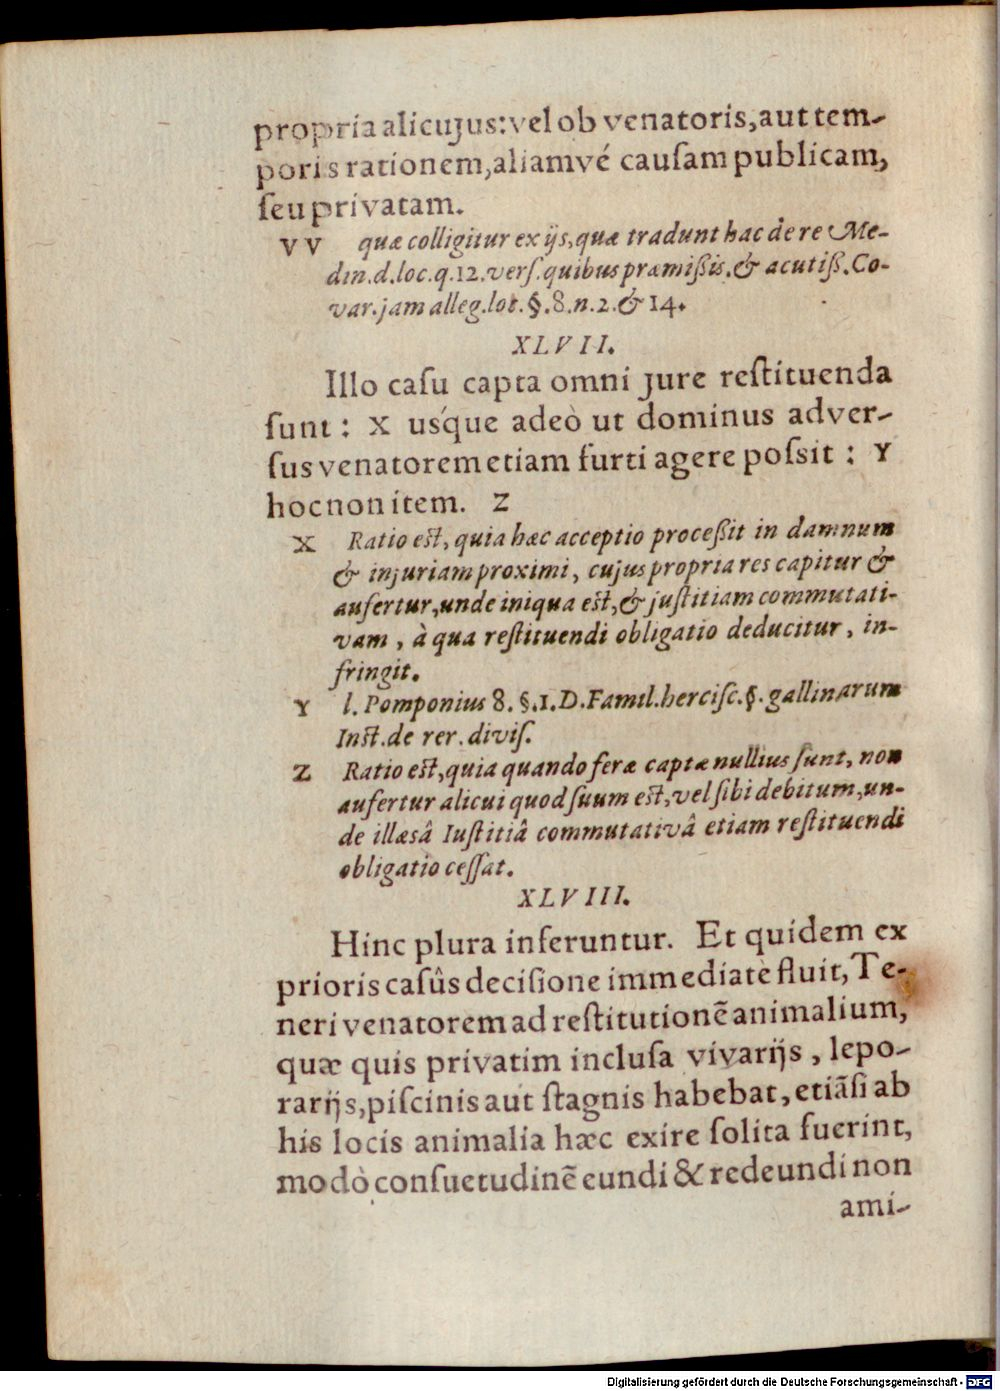 propria alicujus: vel ob venatoris, aut tem-
poris rationem, aliamvé cauſam publicam,
ſeu privatam.
VV quæ colligitur ex ijs, quæ tradunt hac de re Me-
din. d. loc. q. 12. verſ. quibus præmißis. & acutiß. Co-
var. jam alleg. loc. §. 8. n. 2. & 14.
XLVII.
Illo caſu capta omni jure reſtituenda
ſunt: X uśque adeò ut dominus adver-
ſus venatorem etiam furti agere poſsit: Y
hoc non item. Z
X Ratio eſt, quia hæc acceptio proceßit in damnum
& injuriam proximi, cujus propria res capitur &
aufertur, unde iniqua eſt, & juſtitiam commutati-
vam, à qua reſtituendi obligatio deducitur, in-
fringit.
Y l. Pomponius 8. §. 1. D. Famil. herciſc. §. gallinarum
Inſt. de rer. diviſ.
Z Ratio eſt, quia quando feræ captæ nullius ſunt, non
aufertur alicui quod ſuum eſt, vel ſibi debitum, un-
de illæsâ Iuſtitiâ commutativâ etiam reſtituendi
obligatio ceſſat.
XLVIII.
Hinc plura inferuntur. Et quidem ex
prioris caſûs deciſione immediatè fluit, Te-
neri venatorem ad reſtitutionẽ animalium,
quæ quis privatim incluſa vivarijs, lepo-
rarijs, piſcinis aut ſtagnis habebat, etiãſi ab
his locis animalia hæc exire ſolita fuerint,
modò conſuetudinẽ eundi & redeundi non
ami-
Digitalisierung gefördert durch die Deutsche Forschungsgemeinschaft - DFG